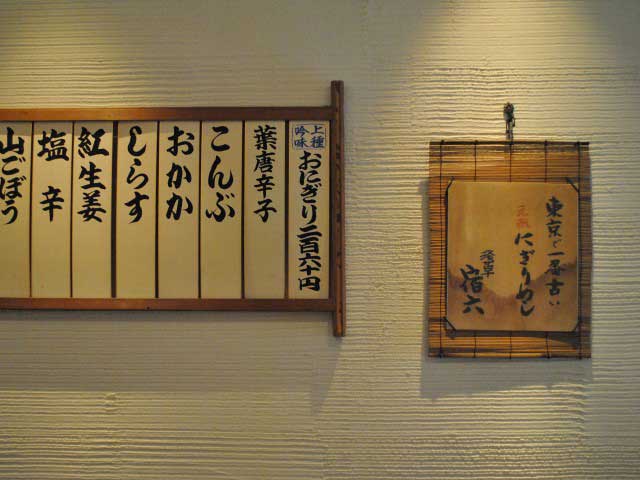 上種
吟味
おにぎり二百六十円
葉唐辛子
こんぶ
おかか
しらす
紅生姜
塩辛
山ごぼう
東京で一番古い
にぎりめし
浅草
宿六